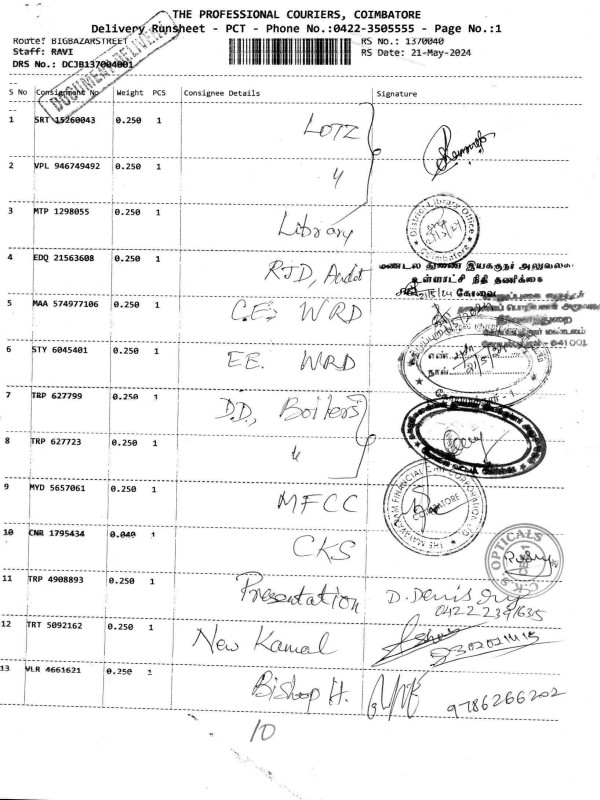 THE PROFESSIONAL COURIERS, COIMBATORE
Delivery Runsheet - PCT - Phone No.:0422-3505555 - Page No.:1
Route: BIGBAZARSTREET RS No.: 1370040
Staff: RAVI RS Date: 21-May-2024
DRS No.: DCJB137004001
DOCUMENT DELIVERY
S No Consignment No Weight PCS Consignee Details Signature
1 SRT 15260043 0.250 1 LOTZ
2 VPL 946749492 0.250 1 "
3 MTP 1298055 0.250 1 Library
District Library Office
Coimbatore
4 EDQ 21563608 0.250 1 RJD, Audit
மண்டல துணை இயக்குநர் அலுவலக
உள்ளாட்சி நிதி தணிக்கை
கோவை
5 MAA 574977106 0.250 1 C.E, WRD
641001
6 STY 6045401 0.250 1 EE. WRD
7 TRP 627799 0.250 1 D.D, Boilers
8 TRP 627723 0.250 1 "
9 MYD 5657061 0.250 1 MFCC
10 CNR 1795434 0.040 1 CKS
OPTICALS
11 TRP 4908893 0.250 1 Presentation D. Denis
0422 2391635
12 TRT 5092162 0.250 1 New Kamal
13 VLR 4661621 0.250 1 Bishop H. 9786266202
10